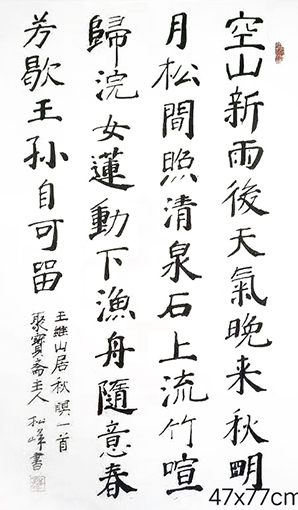 空山新雨後天氣晚来秋明
月松間照清泉石上流竹喧
歸浣女蓮動下漁舟隨意春
芳歇王孙自可留
王維山居秋暝一首
聚寶斋主人 松峰書
47x77cm